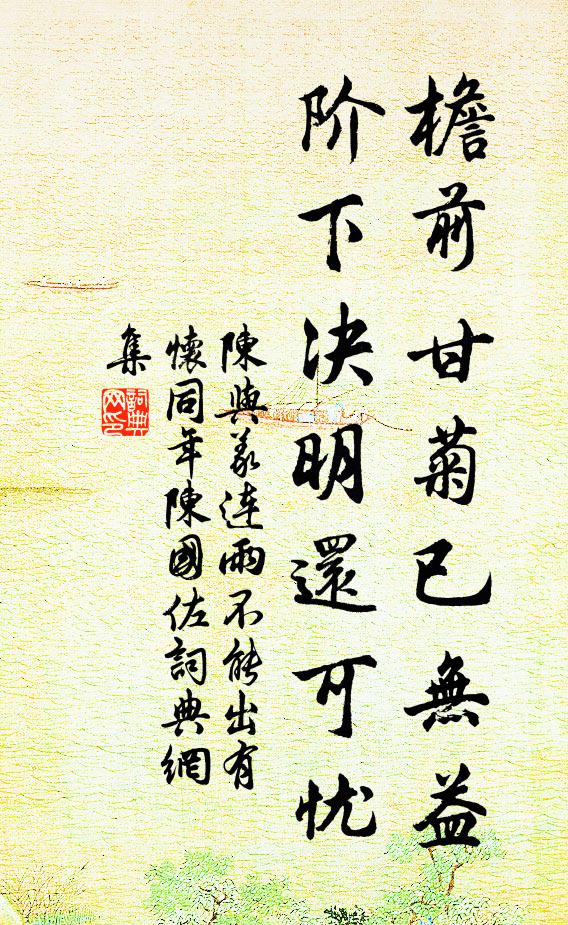 檐前甘菊已無益
阶下决明還可忧
陳與義連雨不能出有
懷同年陳國佐詞典網
集
詞典
网印